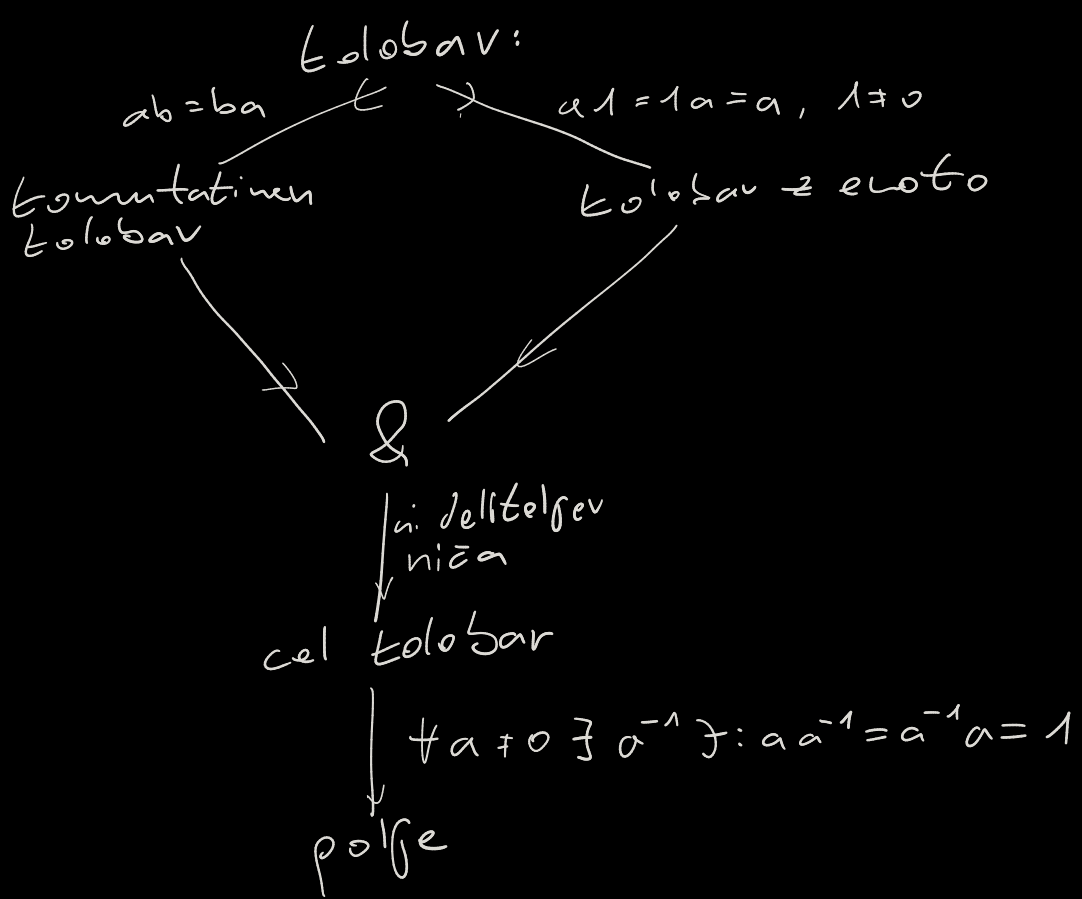 kolobar:
ab = ba
a1 = 1a = a, 1 ≠ 0
komutativen
kolobar
kolobar z enoto
&
ni deliteljev
niča
cel kolobar
∀a ≠ 0 ∃ a⁻¹ ∋: a a⁻¹ = a⁻¹ a = 1
polje